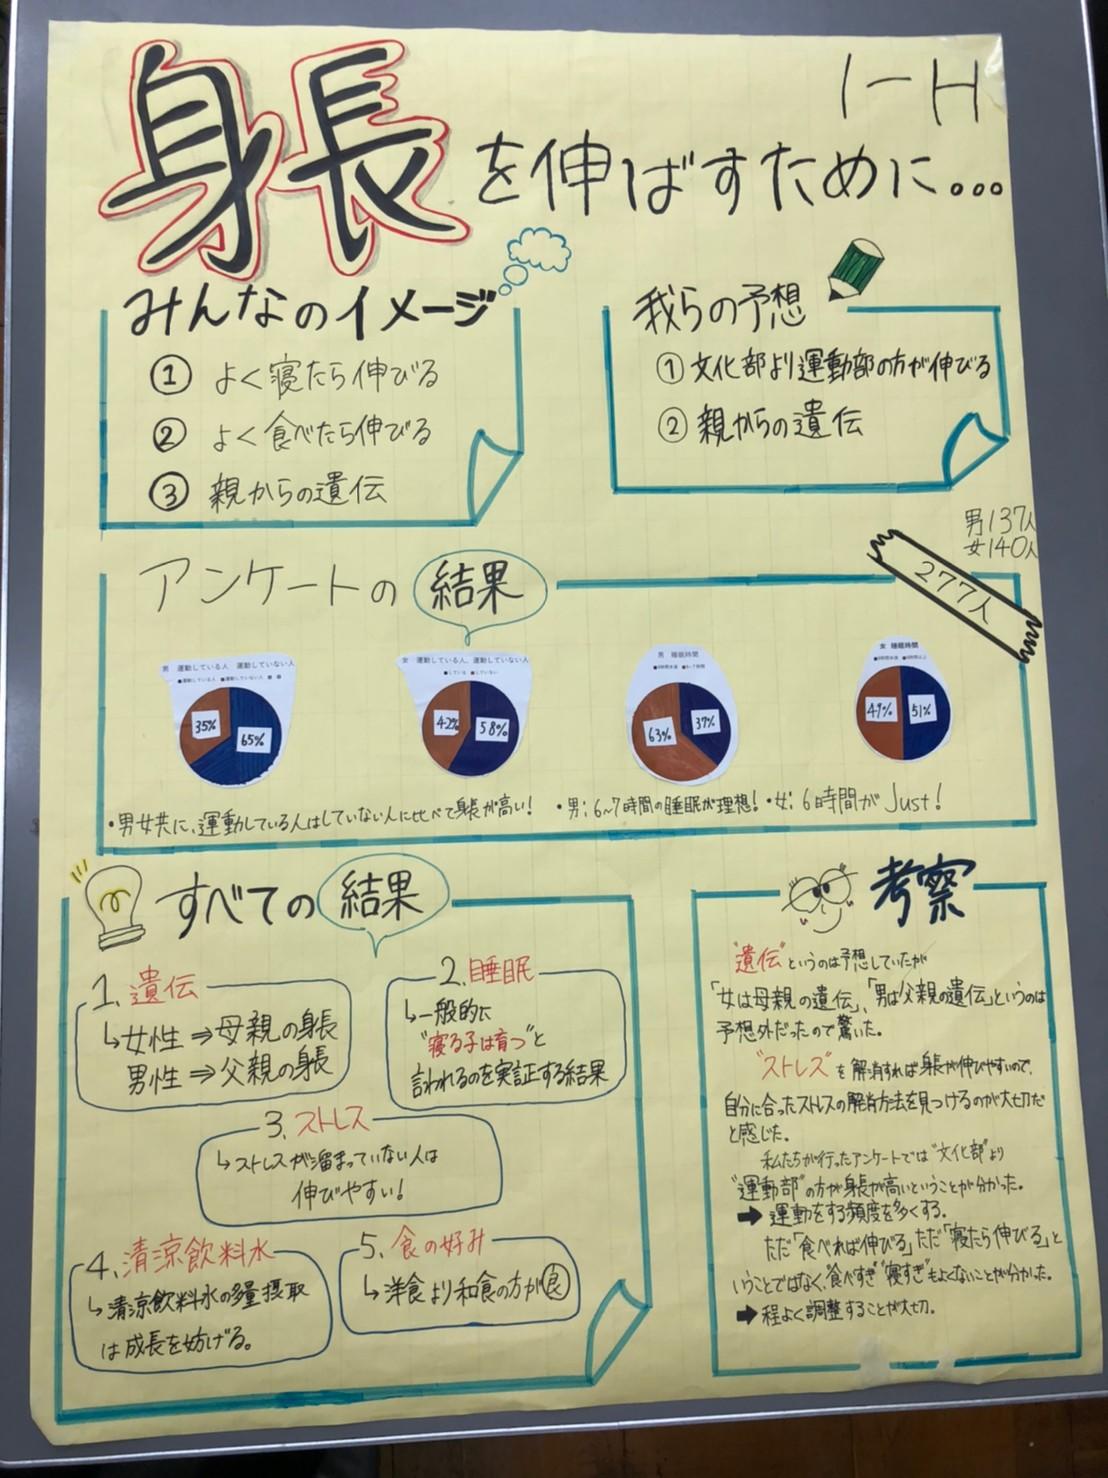 1-H
身長を伸ばすために...
みんなのイメージ
① よく寝たら伸びる
② よく食べたら伸びる
③ 親からの遺伝
我らの予想
① 文化部より運動部の方が伸びる
② 親からの遺伝
男137人
女140人
277人
アンケートの結果
男 運動している人 運動していない人
■運動している人 ■運動していない人
35%
65%
女 運動している人、運動していない人
■している ■していない
42%
58%
男 睡眠時間
■6時間未満 ■6~7時間
63%
37%
女 睡眠時間
49%
51%
・男女共に、運動している人はしていない人に比べて身長が高い!
・男:6~7時間の睡眠が理想!・女:6時間がJust!
すべての結果
1. 遺伝
↳女性⇒母親の身長
男性⇒父親の身長
2. 睡眠
↳一般的に
"寝る子は育つ"と
言われるのを実証する結果
3. ストレス
↳ストレスが溜まっていない人は
伸びやすい!
4. 清涼飲料水
↳清涼飲料水の多量摂取
は成長を妨げる。
5. 食の好み
↳洋食より和食の方が良
考察
"遺伝"というのは予想していたが
「女は母親の遺伝」、「男は父親の遺伝」というのは
予想外だったので驚いた。
"ストレス"を解消すれば身長が伸びやすいので、
自分に合ったストレスの解消方法を見つけるのが大切だ
と感じた。
私たちが行ったアンケートでは"文化部"より
"運動部"の方が身長が高いということが分かった。
➡運動をする頻度を多くする。
ただ「食べれば伸びる」ただ「寝たら伸びる」と
いうことではなく、"食べすぎ""寝すぎ"もよくないことが分かった。
➡程よく調整することが大切。